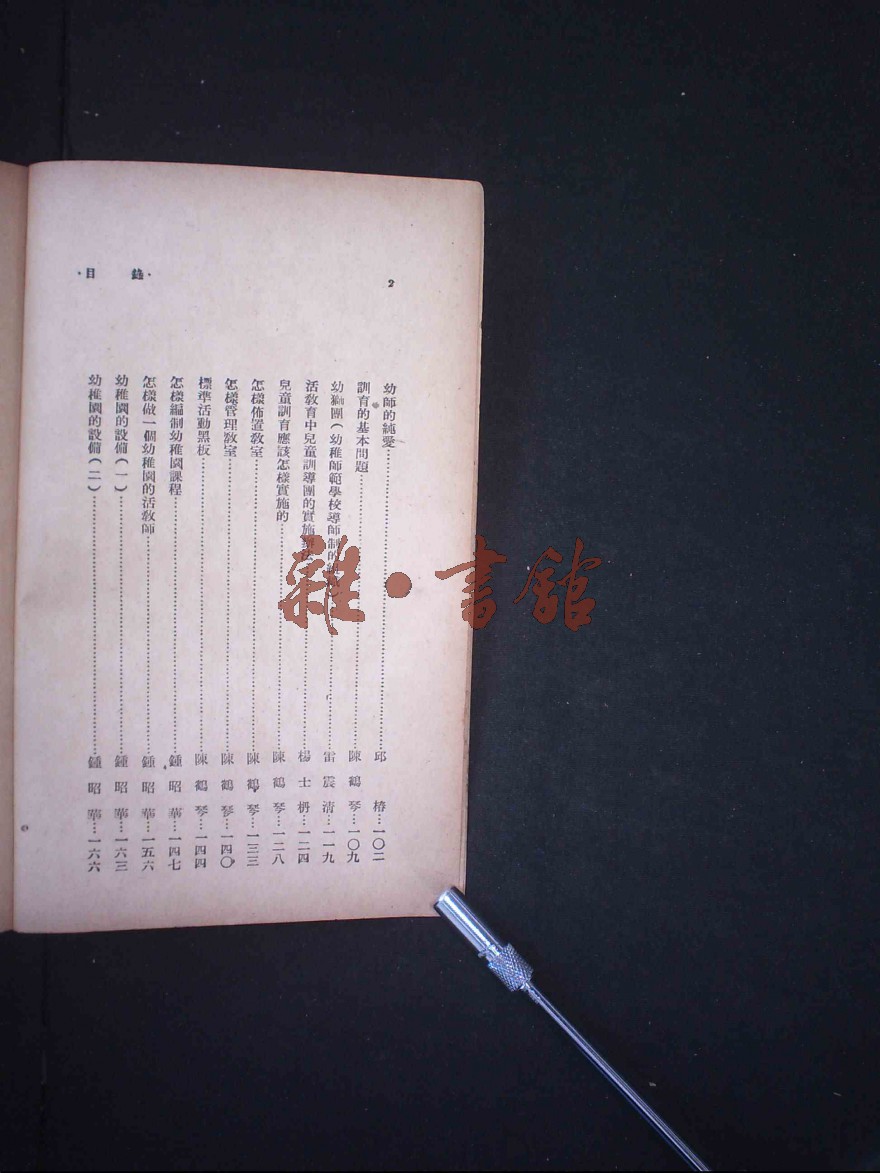 ·目 錄·
2
幼師的純愛……邱 椿…一〇二
訓育的基本問題……陳 鶴 琴…一〇九
幼獅團(幼稚師範學校導師制的……雷 震 清…一一九
活敎育中兒童訓導團的實施……楊 士 枬…一二四
兒童訓育應該怎樣實施的……陳 鶴 琴…一二八
怎樣佈置敎室……陳 鶴 琴…一三三
怎樣管理敎室……陳 鶴 琴…一四〇
標準活動黑板……陳 鶴 琴…一四四
怎樣編制幼稚園課程……鍾 昭 華…一四七
怎樣做一個幼稚園的活敎師……鍾 昭 華…一五六
幼稚園的設備(一)……鍾 昭 華…一六三
幼稚園的設備(二)……鍾 昭 華…一六六
雜·書館